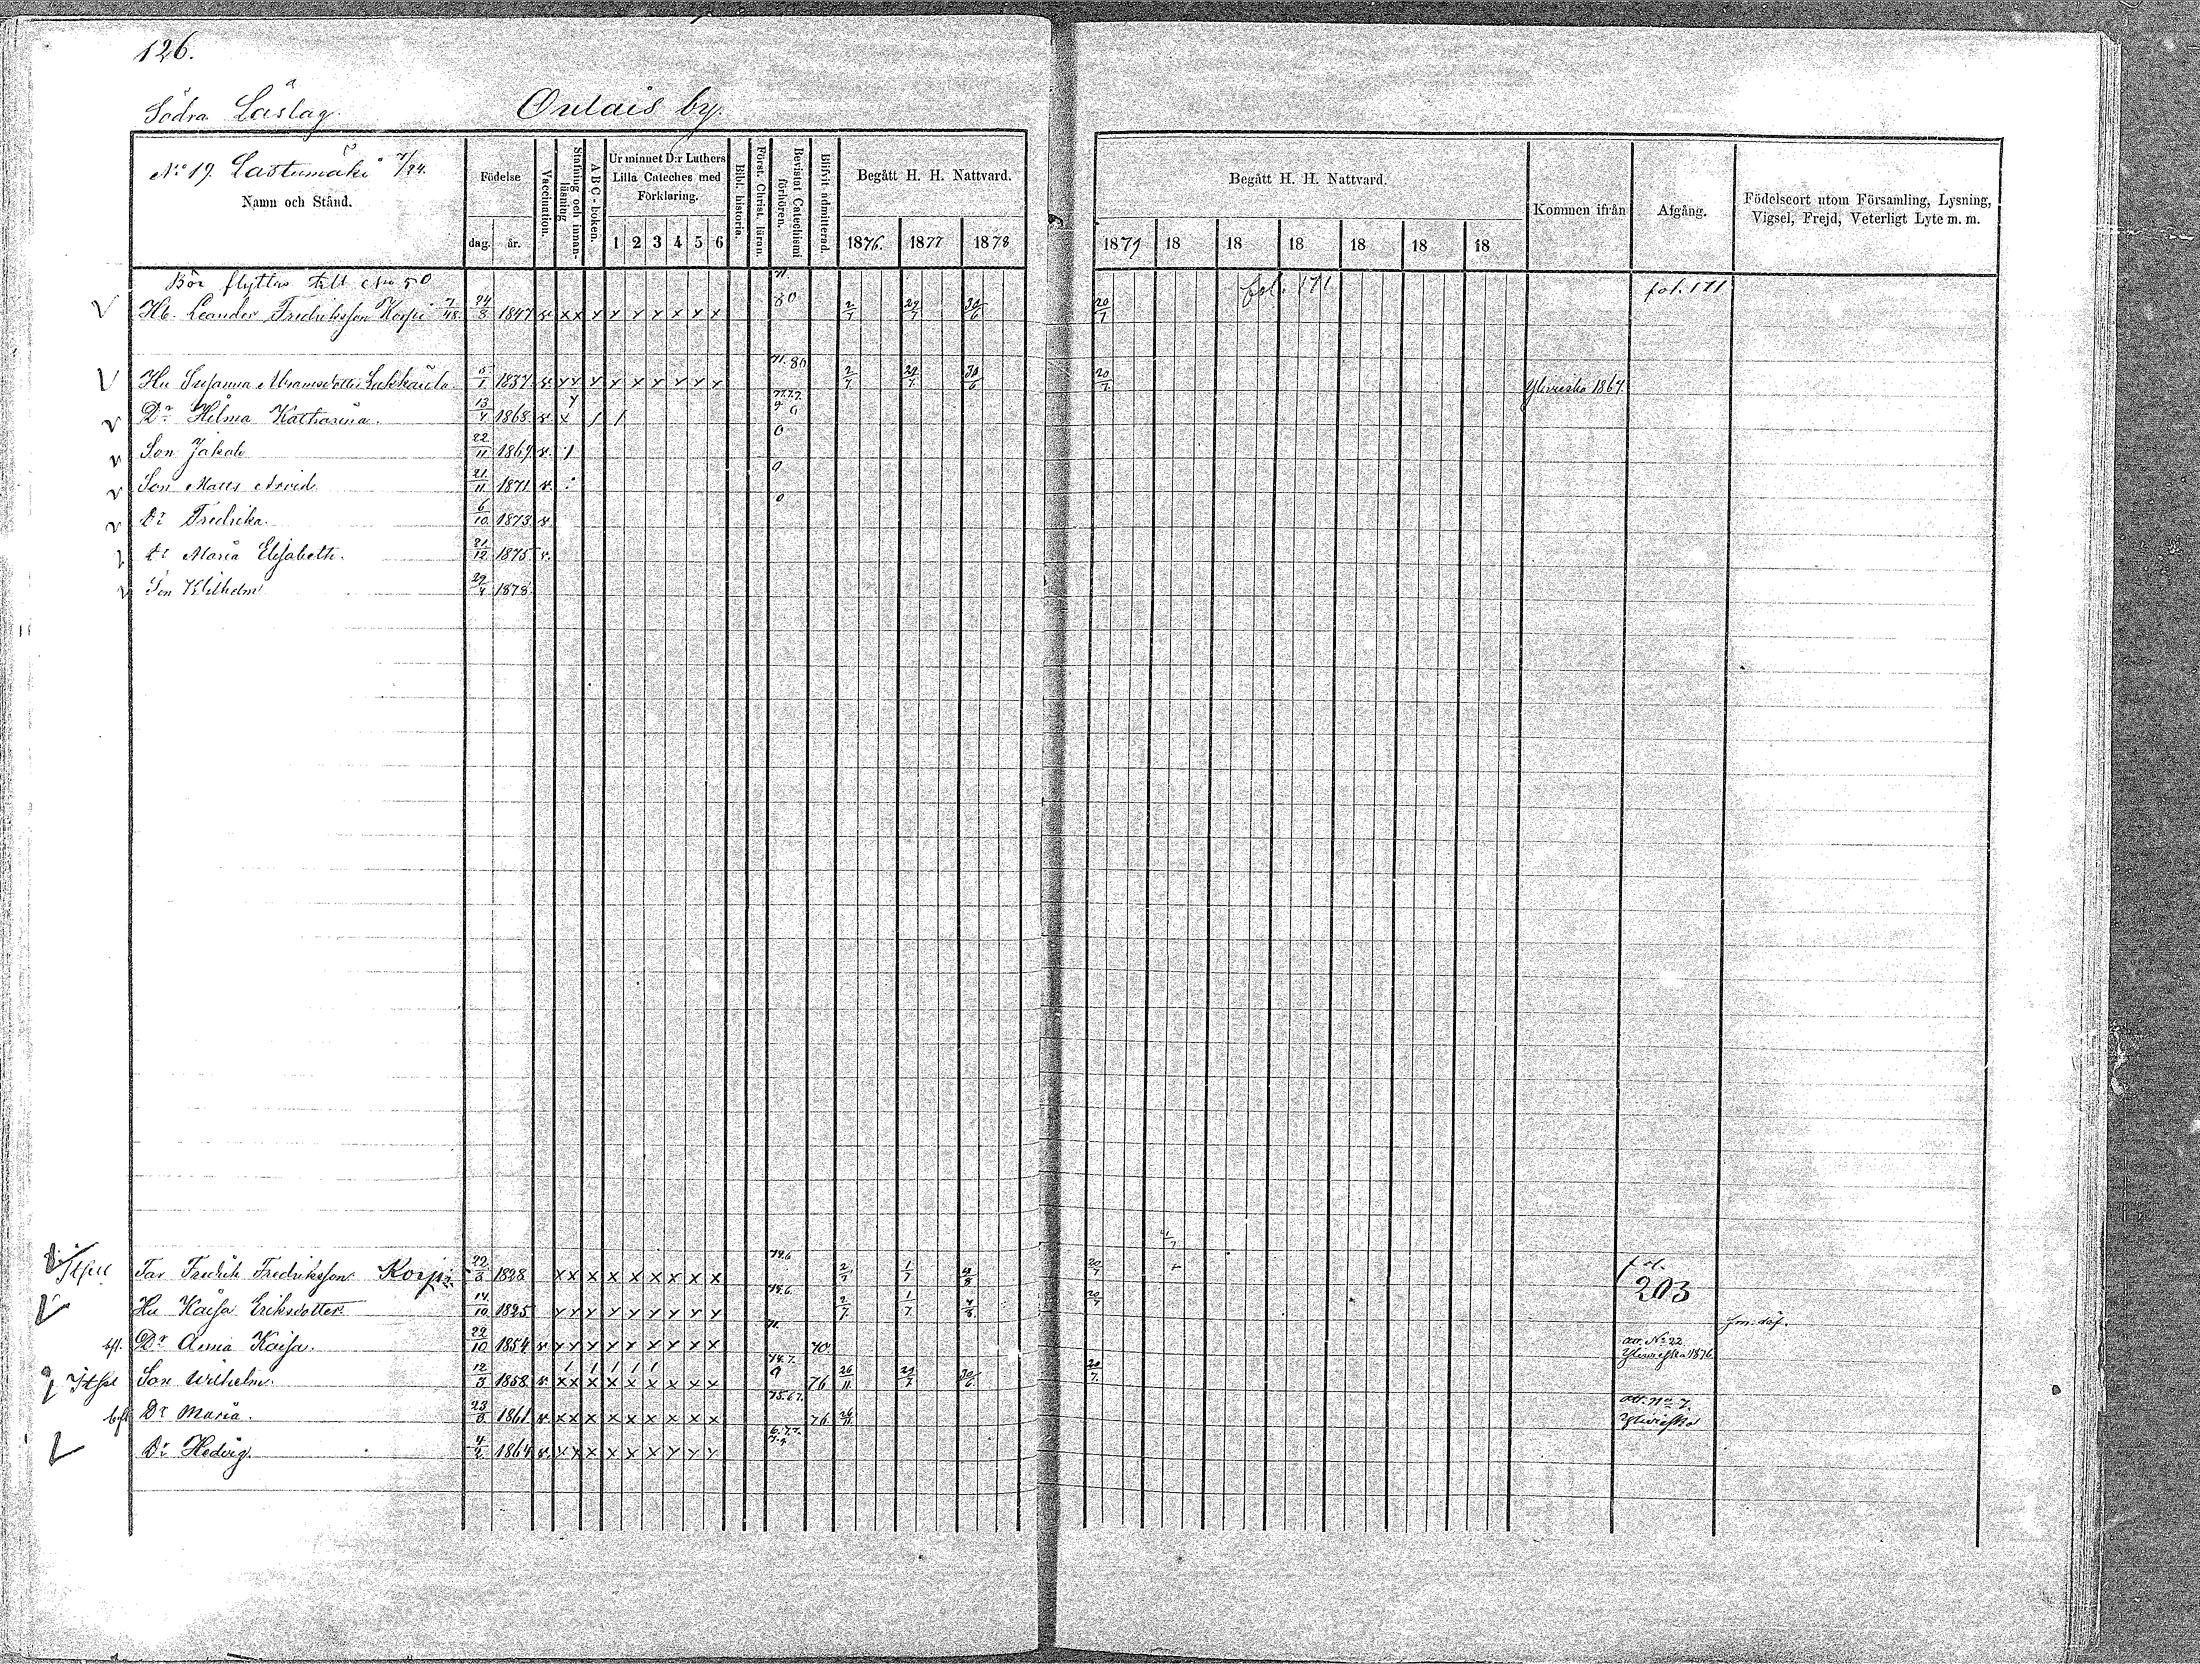 126.
Södra Läslag.
Oulais by.
No 19. Lastumäki 7/24.
Namn och Stånd.
Födelse
dag. år.
Vaccination.
Stafning och innan-läsning.
A B C - boken.
Ur minnet D:r Luthers Lilla Cateches med Förklaring.
1 2 3 4 5 6
Bibl. historia.
Först. Christ. läran.
Bevistat Catechismi förhören.
Blifvit admitterad.
Begått H. H. Nattvard.
1876. 1877 1878
Begått H. H. Nattvard.
1879 18 18 18 18 18 18
Kommen ifrån
Afgång.
Födelseort utom Församling, Lysning, Vigsel, Frejd, Veterligt Lyte m. m.
Bör flyttas till No 50 fol. 171 fol. 171
Hb. Leander Fredriksson Korpi 7/48. 24/3 1847 v x x x x x x x x x 80 2/7 29/7 30/6 20/7
Hu Susanna Abramsdotter 5/1 1837 v x x x x x x x x x 71. 80 2/7 29/7 30/6 20/7 Ylivieska 1867
Dr Hilma Katharina. 13/4 1868 v x / /
Son Jakob 22/11 1869 v. 1 0
Son Matts Arvid 21/11 1871 v. 0
Dr Fredrika. 6/10 1873 v. 0
Dr Maria Elisabeth. 21/12 1875 v.
Son Wilhelm 29/4 1878.
Tar Fredrik Fredriksson Korpi 22/3 1828 x x x x x x x x x 74.6 2/7 1/7 4/8 20/7 fol. 203
Hu Kaisa Eriksdotter 14/10 1825 x x x x x x x x x 74.6 2/7 1/7 4/8 20/7
bfl. Dr Anna Kaisa. 22/10 1854 v x x x x x x x x x 71. 70. att. No 22 Ylivieska 1876
Son Wilhelm. 12/3 1858 v x x x x x x x x x 74.7. 9 76 26/11 29/7 30/6 20/7
Dr Maria. 23/8 1861 v. x x x x x x x x x 75.67. 76 26/11 att. No 7. Ylivieska
Dr Hedvig. 4/2 1864 v. x x x x x x x x x